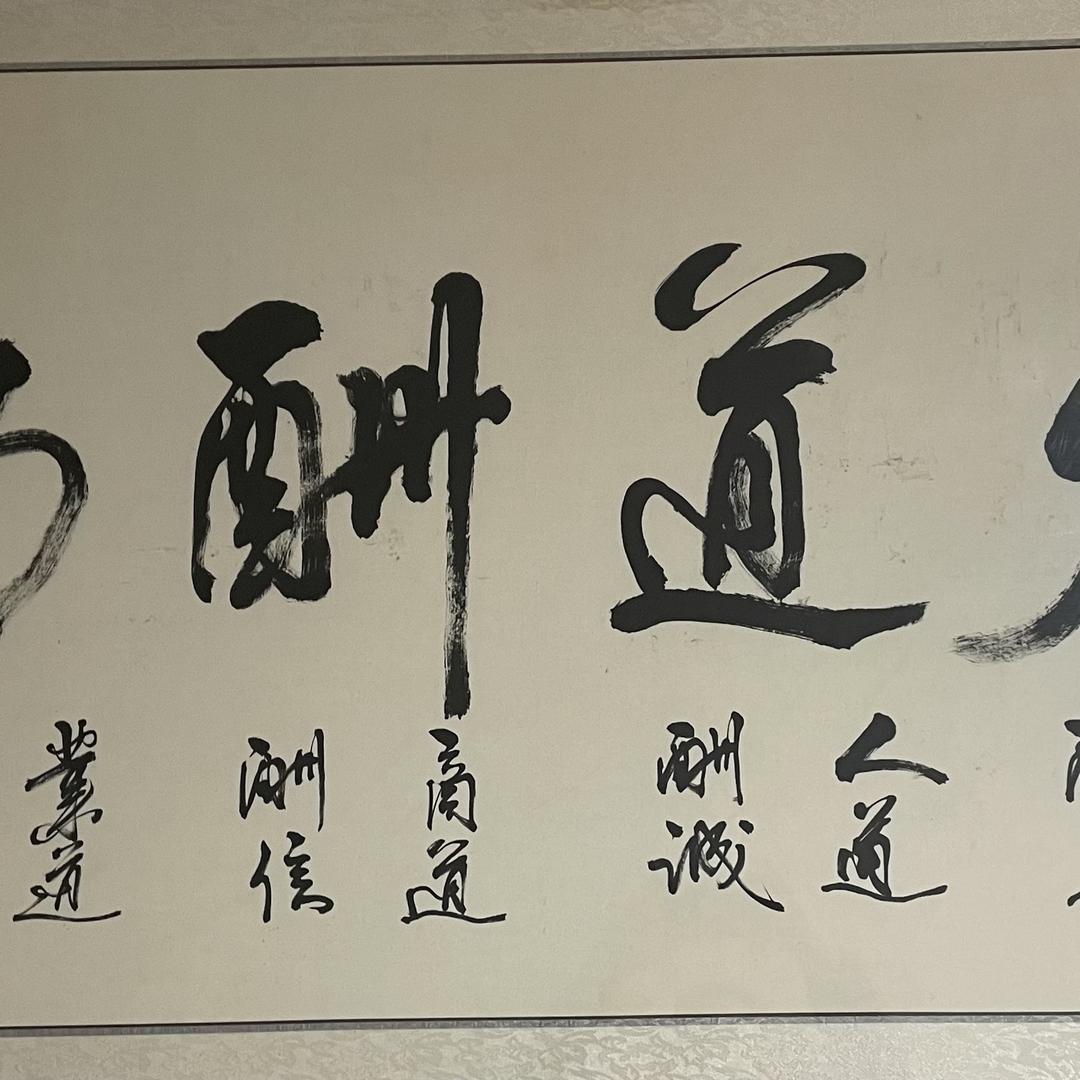 道酬
人道
酬诚
商道
酬信
業道